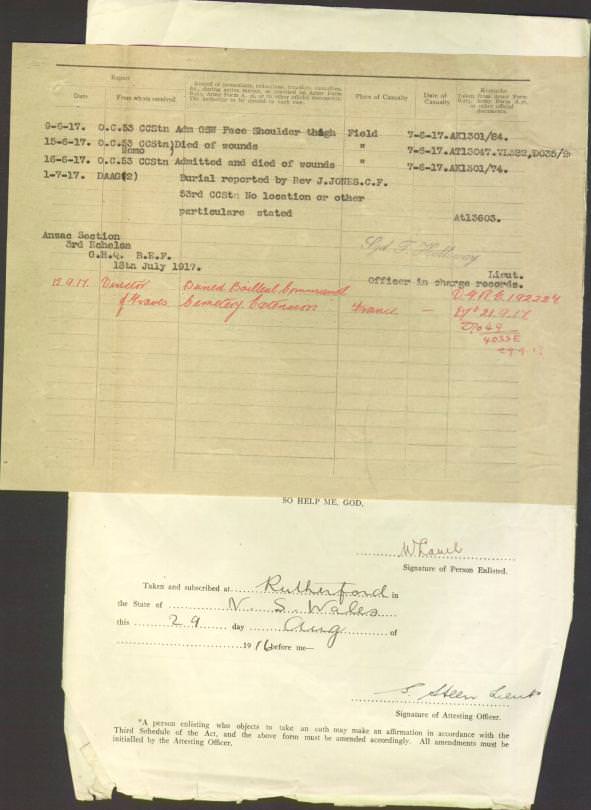 Report
Record of promotions, reductions, transfers, casualties,
&c., during active service, as reported on Army Form
B.213, Army Form A. 36, or in other official documents.
The authority to be quoted in each case.
Remarks
Taken from Army Form
B.213, Army Form A.36,
or other official
documents.
Date From whom received Place of Casualty Date of Casualty
9-6-17. O.C.53 CCStn Adm GSW Face Shoulder thigh Field 7-6-17. AK1301/64.
15-6-17. O.C.53 CCStn) Died of wounds " 7-6-17. AT13047.VL322,DO35/
16-6-17. O.C.53 CCStn Admitted and died of wounds " 7-6-17. AK1301/74.
1-7-17. DAAG(2) Burial reported by Rev J.JONES.C.F.
53rd CCStn No location or other
particulars stated At13603.
Anzac Section
3rd Echelon
G.H.Q. B.E.F.
13th July 1917.
Sgd F. Holloway
Lieut.
Officer in charge records.
12.9.17. Director Buried Bailleul Communal
of Graves Cemetery Extension France —
21.9.17
SO HELP ME, GOD.
Signature of Person Enlisted.
Taken and subscribed at Rutherford in
the State of N. S. Wales
this 29 day Aug of
1916 before me—
S. Steen Lieut
Signature of Attesting Officer.
*A person enlisting who objects to take an oath may make an affirmation in accordance with the
Third Schedule of the Act, and the above form must be amended accordingly. All amendments must be
initialled by the Attesting Officer.